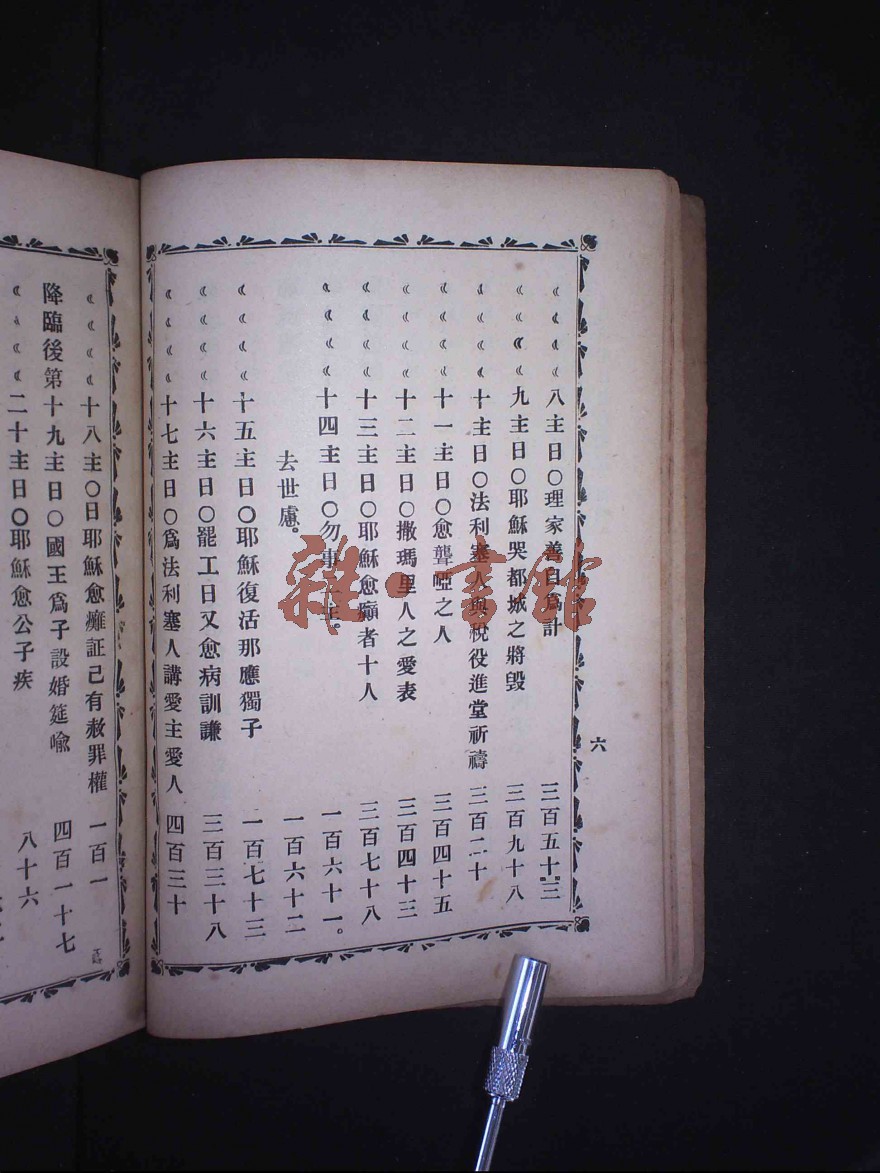 六
〃〃〃〃八主日〇理家善自爲計 三百五十三
〃〃〃〃九主日〇耶穌哭都城之將毀 三百九十八
〃〃〃〃十主日〇法利塞人與稅役進堂祈禱 三百二十
〃〃〃〃十一主日〇愈聾啞之人 三百四十五
〃〃〃〃十二主日〇撒瑪里人之愛表 三百四十三
〃〃〃〃十三主日〇耶穌愈癩者十人 三百七十八
〃〃〃〃十四主日〇勿事二主。 一百六十一。
去世慮。 一百六十二
〃〃〃〃十五主日〇耶穌復活那應獨子 一百七十三
〃〃〃〃十六主日〇罷工日又愈病訓謙 三百三十八
〃〃〃〃十七主日〇爲法利塞人講愛主愛人 四百三十
〃〃〃〃十八主〇日耶穌愈癱証己有赦罪權 一百一
降臨後第十九主日〇國王爲子設婚筵喩 四百一十七
〃〃〃〃二十主日〇耶穌愈公子疾 八十六
雜·書館